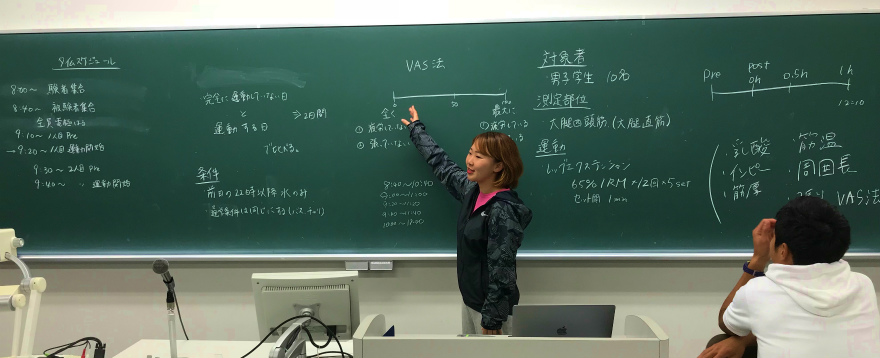 タイムスケジュール
8:00〜 験者集合
8:40〜 被験者集合
全員
9:10〜 1人目 Pre
→9:20〜 1人目 運動開始
9:30〜 2人目 Pre
9:40〜 〃 運動開始
完全に運動していない日
と
運動する日
2日間
条件
前日の22時以降 水のみ
VAS法
0
50
100
全く
① 疲労していない
② 張っていない
最大に
① 疲労している
② 張っている
8:40〜10:40
9:00〜11:00
9:20〜11:20
10:00〜12:00
対象者
・男子学生 10名
測定部位
・大腿四頭筋(大腿直筋)
運動
レッグエクステンション
65%1RM×12回×5set
セット間 1min
Pre
post
0h
0.5h
1h
12:10
・乳酸
・インピー
・筋厚
・筋温
・周囲長
VAS法